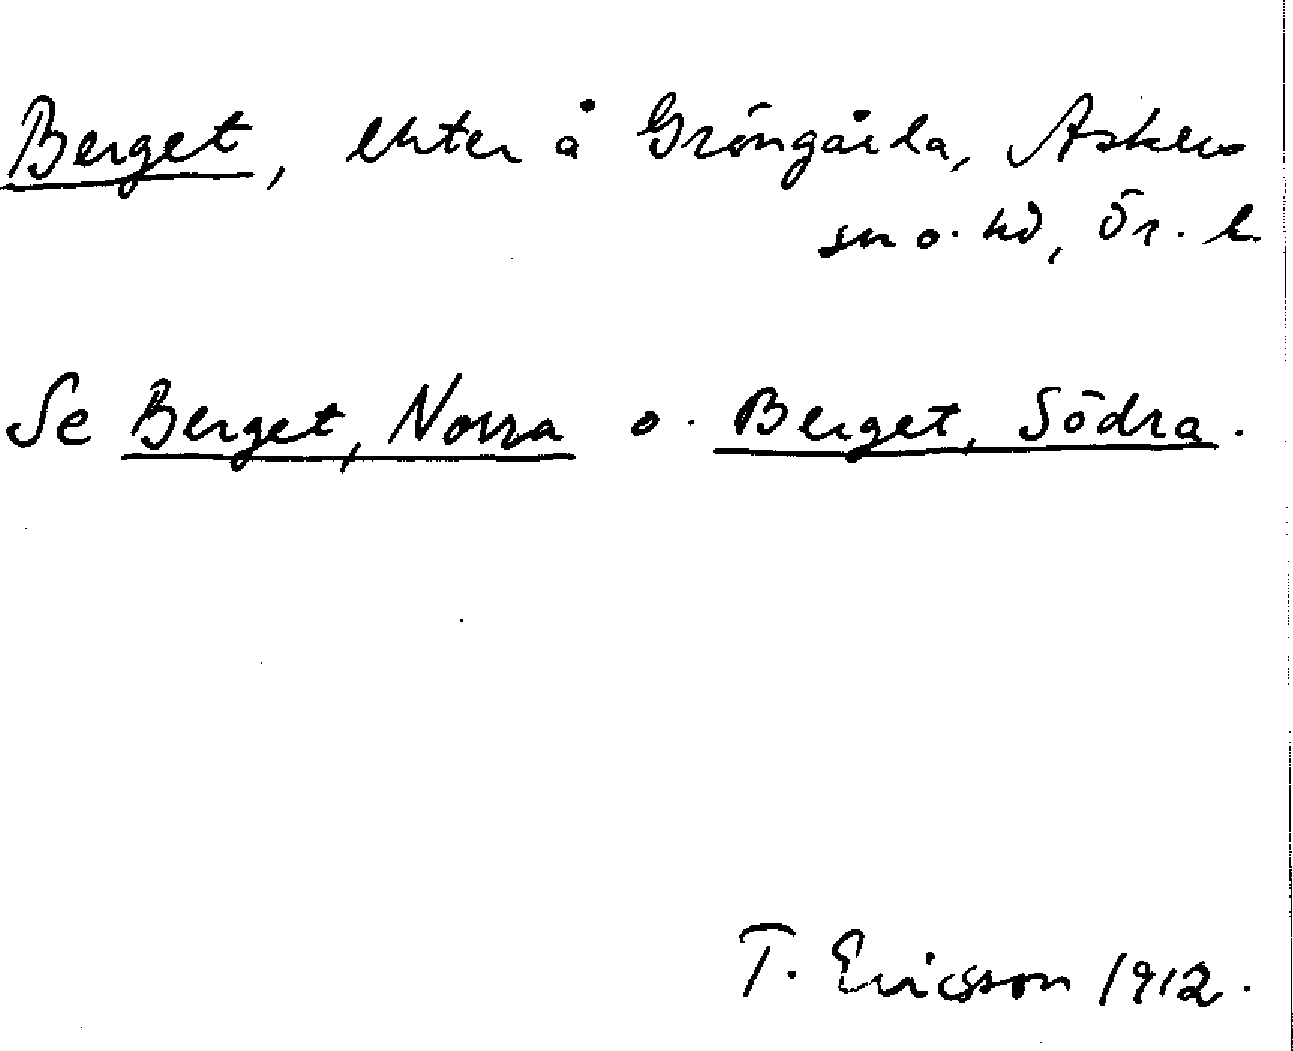 Berget, lhter å Gröngärda, Askers
sn o. hd, Ör. l.
Se Berget, Norra o. Berget, Södra.
T. Ericsson 1912.